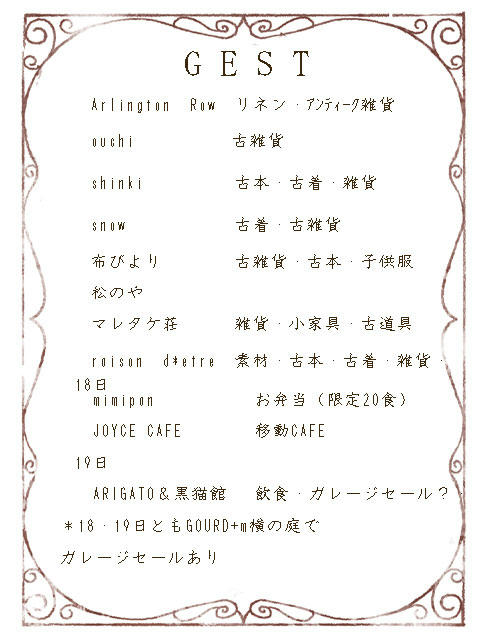 GEST
Arlington Row リネン・アンティーク雑貨
ouchi 古雑貨
shinki 古本・古着・雑貨
snow 古着・古雑貨
布びより 古雑貨・古本・子供服
松のや
マレタケ荘 雑貨・小家具・古道具
roison d*etre 素材・古本・古着・雑貨・
18日
mimipon お弁当（限定20食）
JOYCE CAFE 移動CAFE
19日
ARIGATO＆黒猫館 飲食・ガレージセール？
＊18・19日ともGOURD+m横の庭で
ガレージセールあり